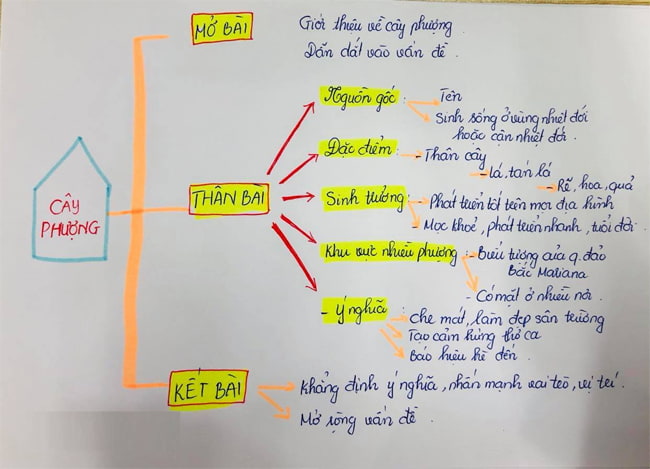 CÂY
PHƯỢNG
MỞ BÀI
Giới thiệu về cây phượng
Dẫn dắt vào vấn đề.
THÂN BÀI
Nguồn gốc:
Tên
Sinh sống ở vùng nhiệt đới
hoặc cận nhiệt đới.
Đặc điểm:
- Thân cây
- lá, tán lá
- Rễ, hoa, quả
Sinh trưởng:
- Phát triển tốt trên mọi địa hình
- Mọc khoẻ, phát triển nhanh, tuổi đời
Khu vực nhiều phượng:
- Biểu tượng của q. đảo
Bắc Mariana
- Có mặt ở nhiều nơi.
- Ý nghĩa
Che mát, làm đẹp sân trường
Tạo cảm hứng thơ ca
Báo hiệu hè đến.
KẾT BÀI
Khẳng định ý nghĩa, nhấn mạnh vai trò, vị trí.
Mở rộng vấn đề.